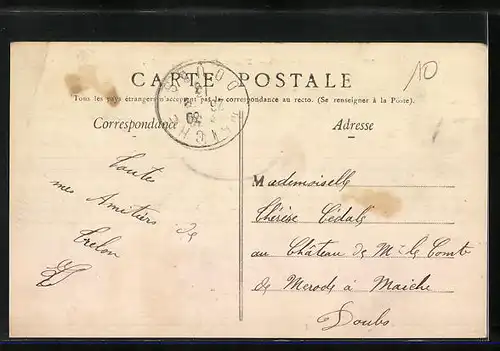 10
CARTE POSTALE
Tous les pays étrangers n'acceptent pas la correspondance au recto. (Se renseigner à la Poste).
Correspondance
Adresse
Toutes
mes Amitiés de
Trelon
Mademoiselle
Thérèse
au Château de Mr le Comte
de Merode à Maiche
Doubs